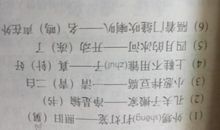 (1) 外甥(shēng)打灯笼——照旧(舅)
(2) 孔夫搬家——净是输(书)
(3) 小葱拌豆腐——一清(青)二白
(4) 上鞋不用锥(zhuī)子——真(针)好
(5) 四月的冰河——开动(冻)了
(6) 隔着门缝吹喇叭——名(鸣)声在外